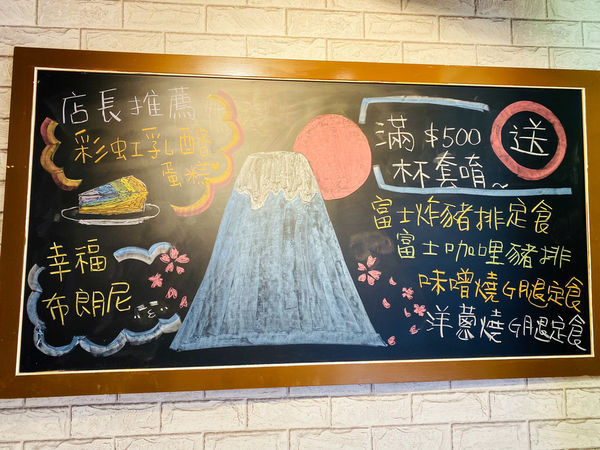 店長推薦
彩虹乳酪
蛋糕
幸福
布朗尼
滿 $500 送
杯套唷~
富士炸豬排定食
富士咖哩豬排
味噌燒G腿定食
洋蔥燒G腿定食